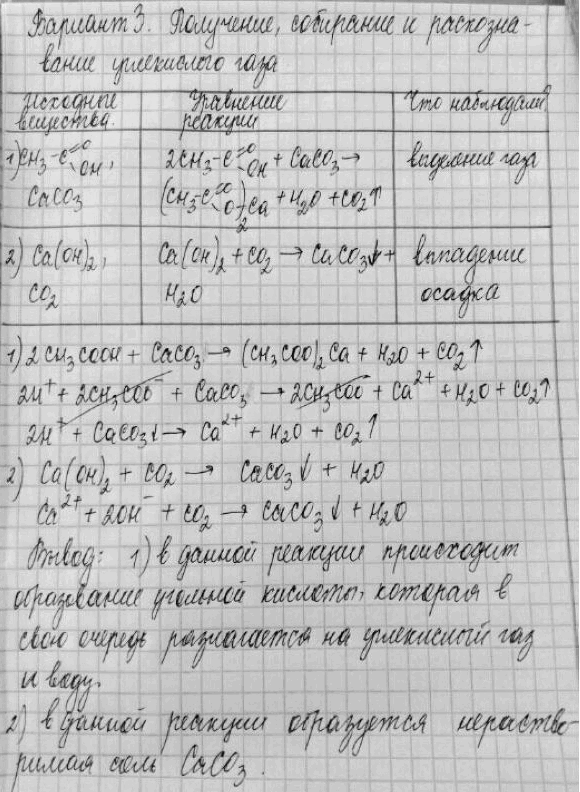 Вариант 3. Получение, собирание и распозна-
вание углекислого газа
Исходные вещества. Уравнение реакции Что наблюдали?
1) CH3-C=O OH, 2CH3-C=O OH + CaCO3 → выделение газа
CaCO3 (CH3-C=O O-)2 Ca + H2O + CO2↑
2) Ca(OH)2, Ca(OH)2 + CO2 → CaCO3↓ + выпадение
CO2 H2O осадка
1) 2CH3COOH + CaCO3 → (CH3COO)2Ca + H2O + CO2↑
2H+ + 2CH3COO- + CaCO3 → 2CH3COO + Ca2+ + H2O + CO2↑
2H+ + CaCO3↓ → Ca2+ + H2O + CO2↑
2) Ca(OH)2 + CO2 → CaCO3↓ + H2O
Ca2+ + 2OH- + CO2 → CaCO3↓ + H2O
Вывод: 1) в данной реакции происходит
образование угольной кислоты, которая в
свою очередь разлагается на углекислый газ
и воду.
2) в данной реакции образуется нераство-
римая соль CaCO3.